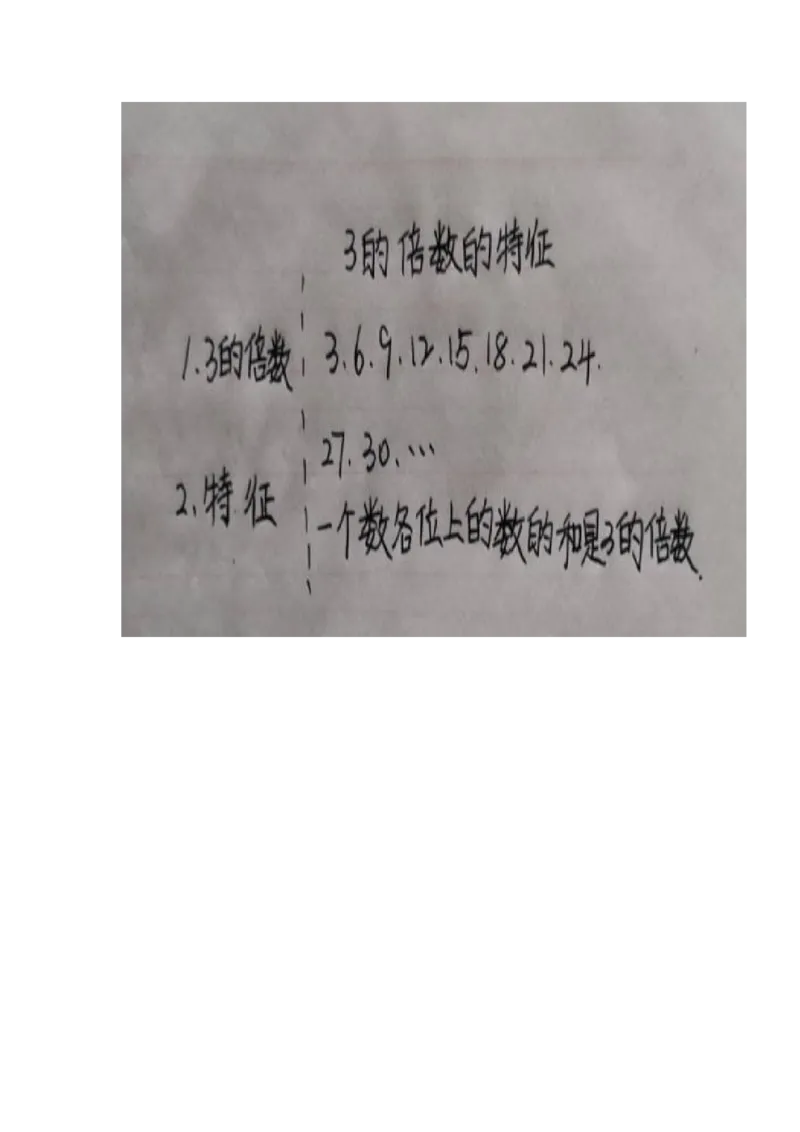 3的倍数的特征
1.3的倍数 3.6.9.12.15.18.21.24.
27.30.…
2.特征
一个数各位上的数的和是3的倍数.